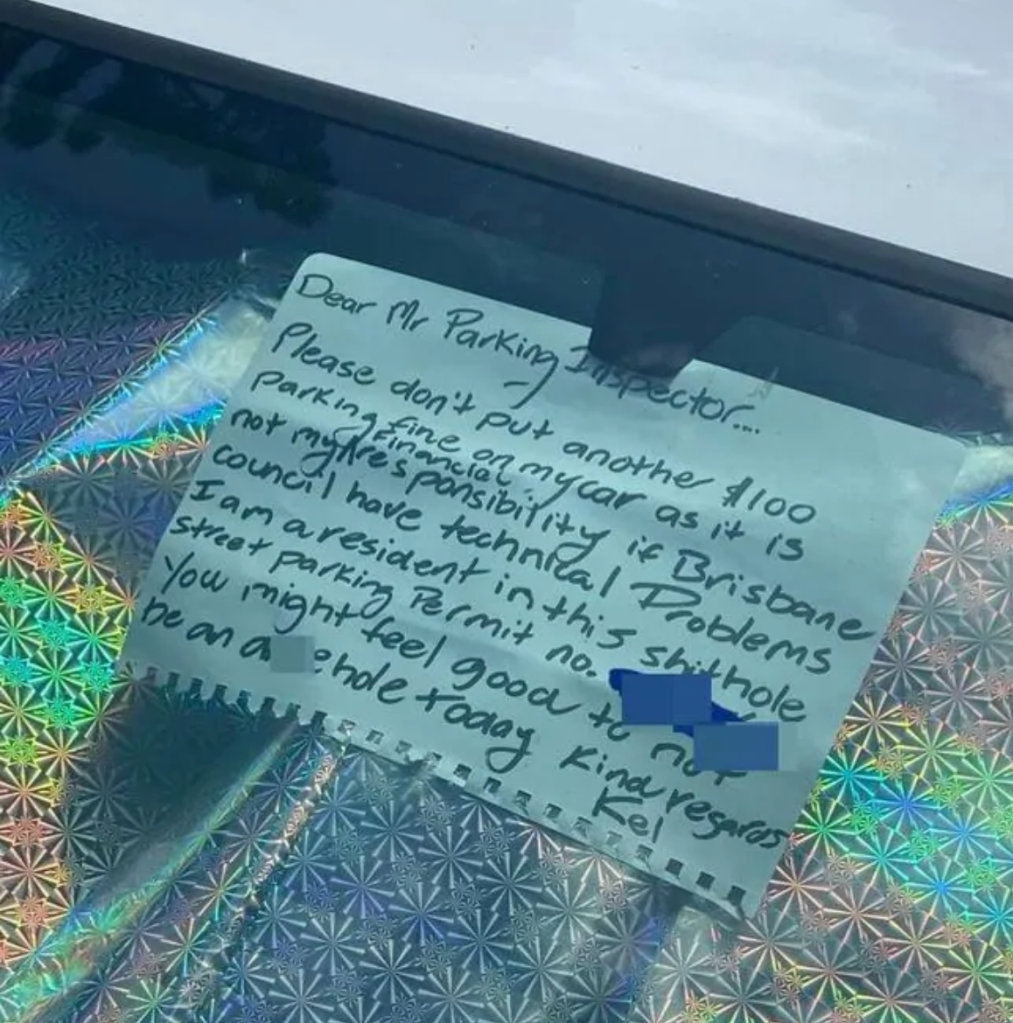 Dear Mr Parking Inspector...
Please don't put another $100
parking fine on my car as it is
not my financial responsibility if Brisbane
council have technical Problems
I am a resident in this shithole
street parking Permit no.
You might feel good to not
be an a ehole today Kind regards
Kel